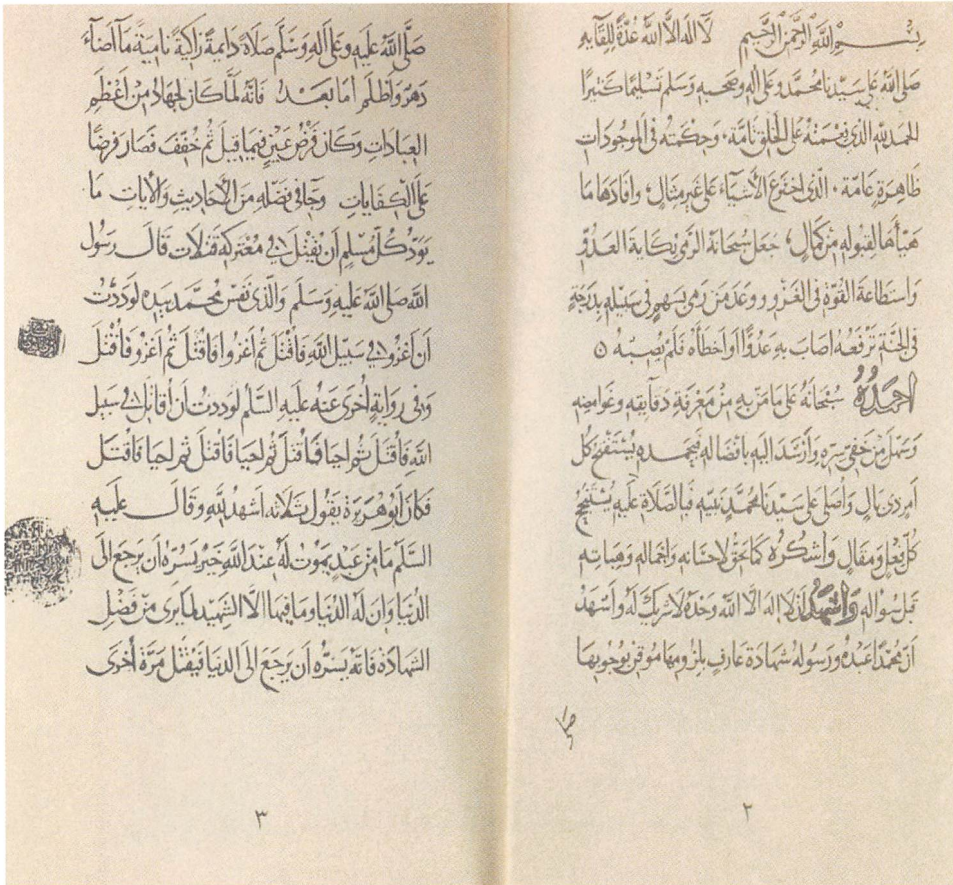 بسم الله الرحمن الرحيم لا اله الا الله عدة للقايه
صلى الله على سيدنا محمد وعلى اله وصحبه وسلم تسليما كثيرا
الحمد لله الذى نعمته على الخلق تامة، وحكمته فى الموجودات
ظاهرة عامة، الذى اخترع الأشياء على غير مثال، وافادها ما
هيأها لقبوله من كمال، جعل سبحانه الرمى نكاية العدو
واستطاعة القوة فى الغزو ووعد من رمى بسهم فى سبيله بدرجة
فى الجنة ترفعه اصاب به عدوا او اخطأه فلم يصبه ٥
احمده سبحانه على ما من به من معرفة دقايقه وغوامضه
وسهل من خفى سره وأرشد اليه بافضاله فبحمده يستفتح كل
امر ذى بال وأصلى على سيدنا محمد نبيه فبالصلاة عليه يستنجح
كل فعل ومقال واشكره كما يحق لاحسانه واجماله وهباته
قبل سواله واشهد أن لا اله الا الله وحده لا شريك له واشهد
أن محمدا عبده ورسوله شهادة عارف بلزومها موقن بوجوبها
٢
صلى الله عليه وعلى اله وسلم صلاة دايمة زاكية نامية ما أضاء
دهر وأظلم اما بعد فانه لما كان الجهاد من أعظم
العبادات وكان فرض عين فيما قبل ثم خفف فصار فرضا
على الكفايات وجا فى فضله من الأحاديث والايات ما
يود كل مسلم أن يقتل فى معتركه قتلات قال رسول
الله صلى الله عليه وسلم والذى نفس محمد بيده لوددت
أن أغزو فى سبيل الله فأقتل ثم أغزوا فاقتل ثم أغزو فأقتل
وفى رواية أخرى عنه عليه السلم لوددت أن أقاتل فى سبيل
الله فأقتل ثم احيا فأقتل ثم احيا فأقتل ثم احيا فاقتل
فكان أبو هريرة يقول ثلاثة اشهد لله وقال عليه
السلم ما من عبد يموت له عند الله خير يسره أن يرجع الى
الدنيا وان له الدنيا وما فيها الا الشهيد لما يرى من فضل
الشهادة فانه يسره أن يرجع الى الدنيا فيقتل مرة أخرى
٣